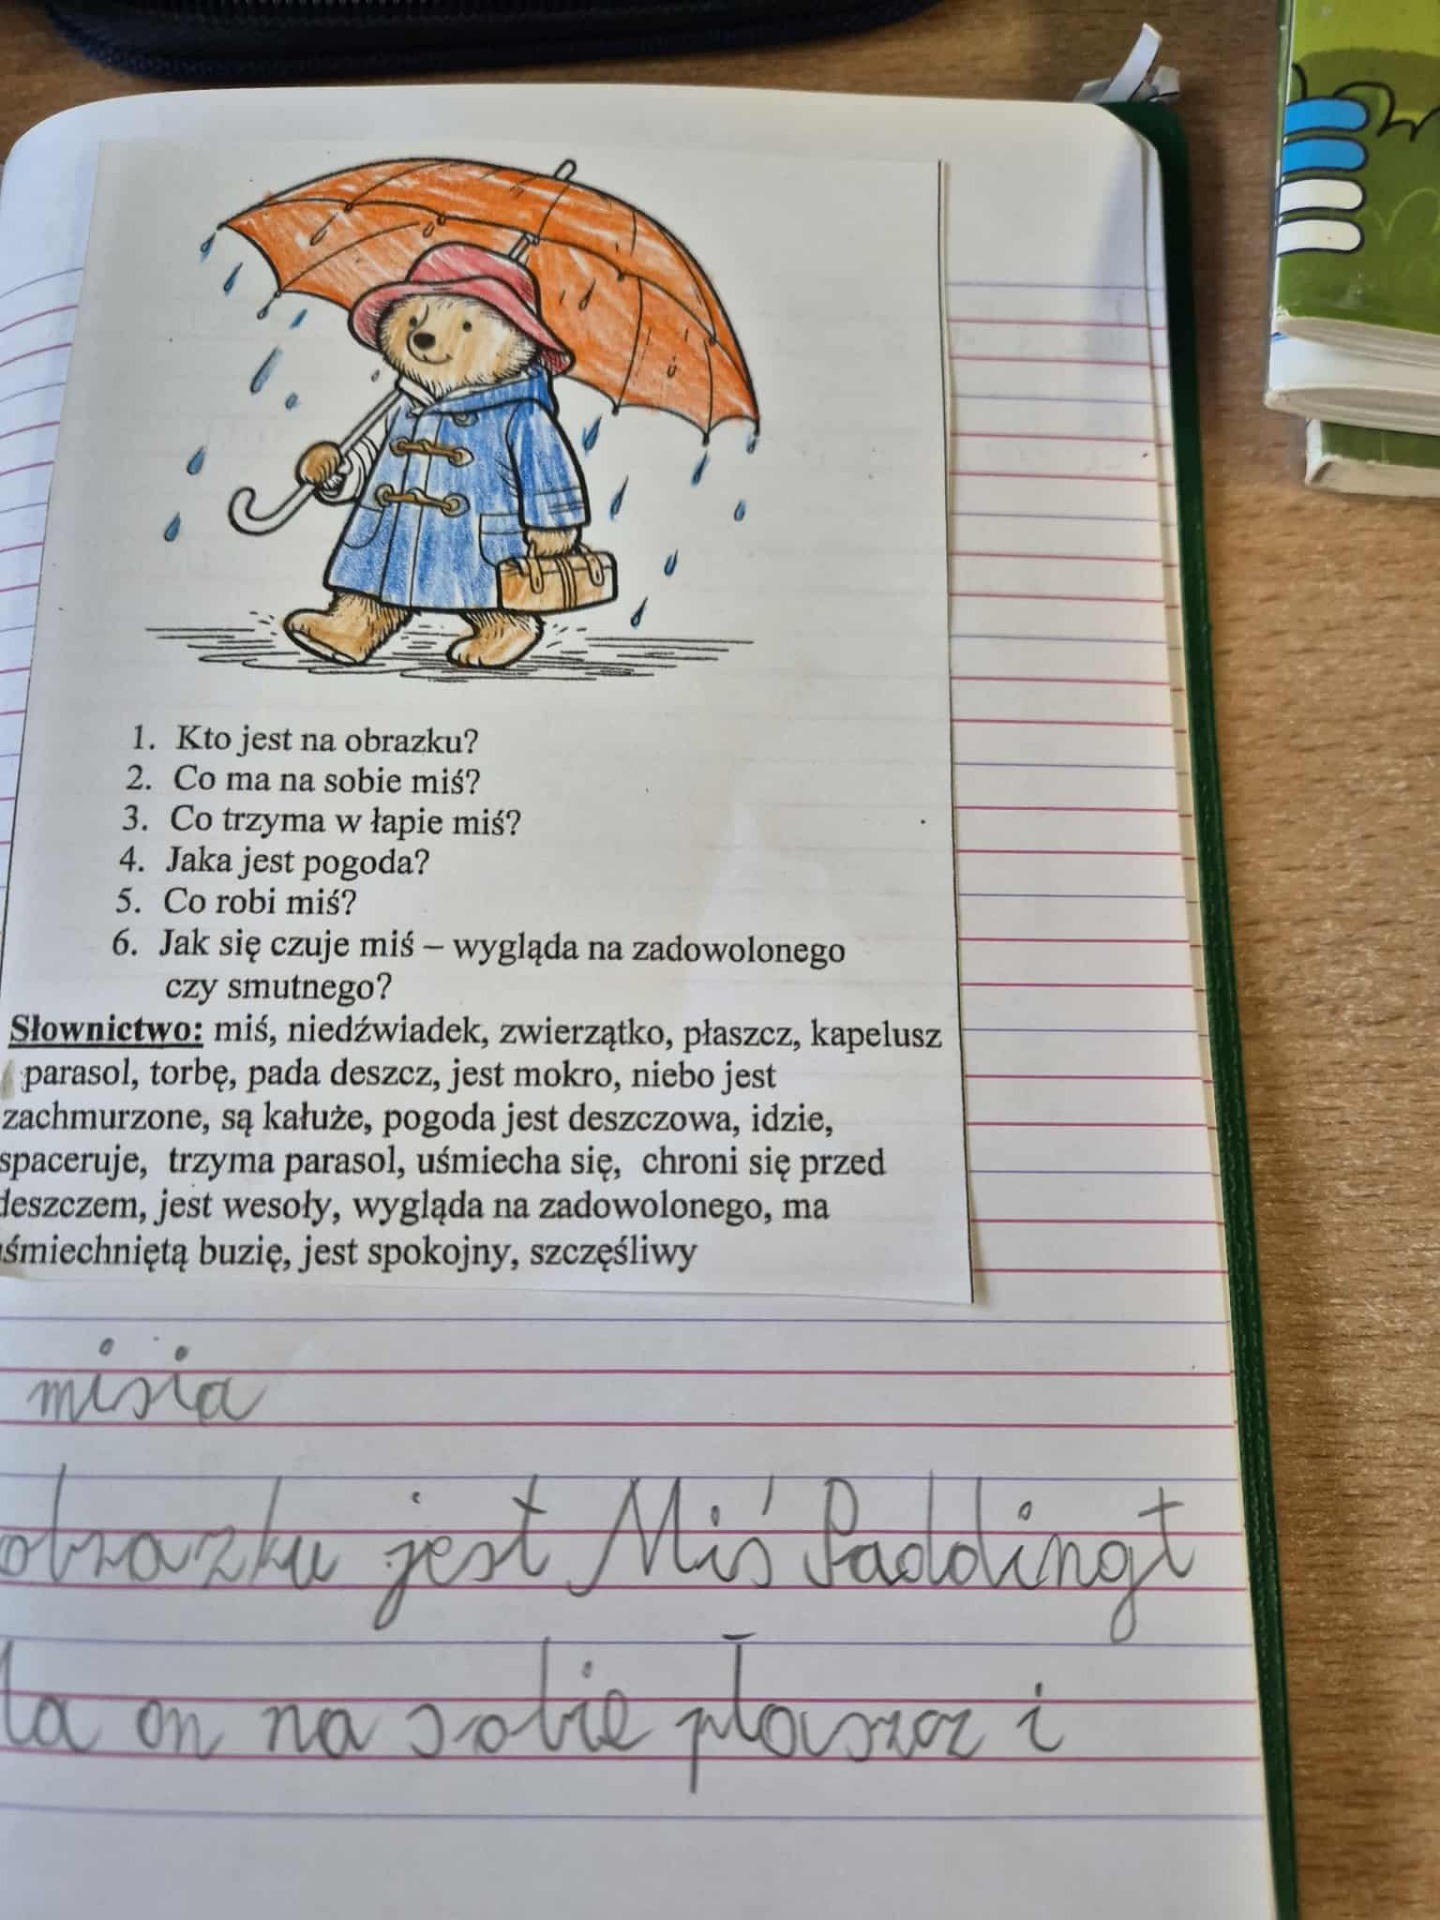 1. Kto jest na obrazku?
2. Co ma na sobie miś?
3. Co trzyma w łapie miś?
4. Jaka jest pogoda?
5. Co robi miś?
6. Jak się czuje miś – wygląda na zadowolonego
czy smutnego?
Słownictwo: miś, niedźwiadek, zwierzątko, płaszcz, kapelusz
parasol, torbę, pada deszcz, jest mokro, niebo jest
zachmurzone, są kałuże, pogoda jest deszczowa, idzie,
spaceruje, trzyma parasol, uśmiecha się, chroni się przed
deszczem, jest wesoły, wygląda na zadowolonego, ma
uśmiechniętą buzię, jest spokojny, szczęśliwy
misia
obrazku jest Miś Paddingt
on na sobie płaszcz i